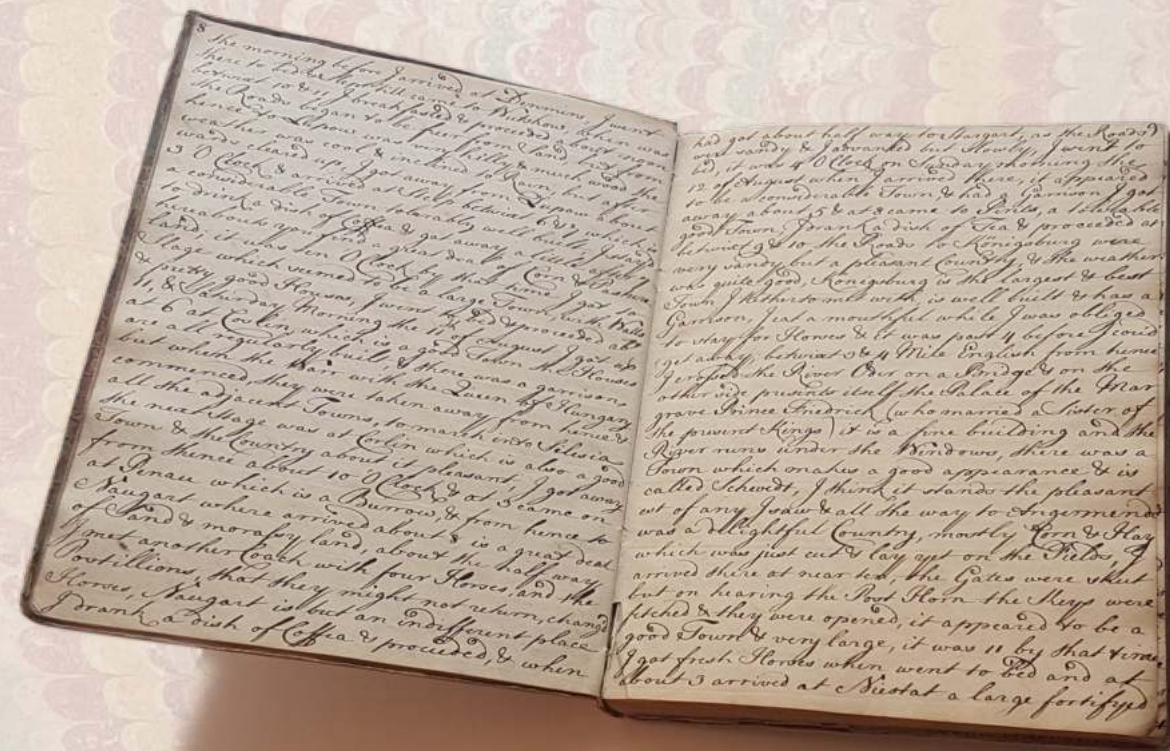 8
the morning before I arrived at Demmins, I went
there to bed & slept till came to Wutskow, then was
betwixt 10 & 11 I breakfasted & proceeded about noon
the Roads began to be freer from Sand, but from
hence to Lupow was rather hilly & much wood the
weather was cool & inclined to Rain, but after
wards cleared up, I got away from Lupow about
3 O'Clock & arrived at Sleep betwixt 6 & 7, which is
a considerable Town tolerably well built, I stayd
to drink a dish of Coffea & got away a little after 7
hereabouts you find a great deal of Corn & Pasture
land, it was ten O'Clock by that time I got to
Stage which seemed to be a large Town, with Walls
& pretty good Houses, I went to bed & proceeded abt
11, & Saturday Morning the 11 of August I got up
at 6 at Coslin, which is a good Town the Houses
are all regularly built, & there was a garrison
but when the War with the Queen of Hungary
commenced they were taken away from hence &
all the adjacent Towns, to march into Silesia
the next Stage was at Corlin which is also a good
Town & the Country about it pleasant, I got away
from thence about 10 O'Clock & at 3 came on
at Pinau which is a Burrow & from hence to
Naugart where arrived about 8 is a great deal
of Sand & morassy land, about the half way
I met another Coach with four Horses, and the
Postillions, that they might not return, changd
Horses, Naugart is but an indifferent place
I drank a dish of Coffea & proceeded, & when
had got about half way to Stargart, as the Roads
were sandy & I advanced but slowly, I went to
bed, it was 4 O'Clock on Sunday morning the
12 of August when I arrived there, it appeared
to be a considerable Town, & had a Garrison I got
away about 5 & at 8 came to Piritz, a tolerable
good Town, I drank a dish of Tea & proceeded at
betwixt 9 & 10 the Roads to Konigsburg were
very sandy but a pleasant Country, & the weather
was quite good, Konigsburg is the largest & best
Town I hitherto met with, is well built & has a
Garrison, I eat a mouthful while I was obliged
to stay for Horses & it was past 4 before I could
get away, betwixt 3 & 4 Mile English from hence
I crossed the River Oder on a Bridge & on the
other side presents itself the Palace of the Mar
grave Prince Friedrich (who married a Sister of
the present Kings) it is a fine building and the
River runs under the Windows, there was a
Town which makes a good appearance & is
called Schwedt, I think it stands the pleasant-
est of any I saw & all the way to Angermend
was a delightful Country, mostly Corn & Hay
which was just cut & lay yet on the Fields, I
arrived there at near ten, the Gates were shut
but on hearing the Post Horn the Keys were
fitched & they were opened, it appeared to be a
good Town & very large, it was 11 by that time
I got fresh Horses when went to bed and at
about 3 arrived at Niestat a large fortifyed